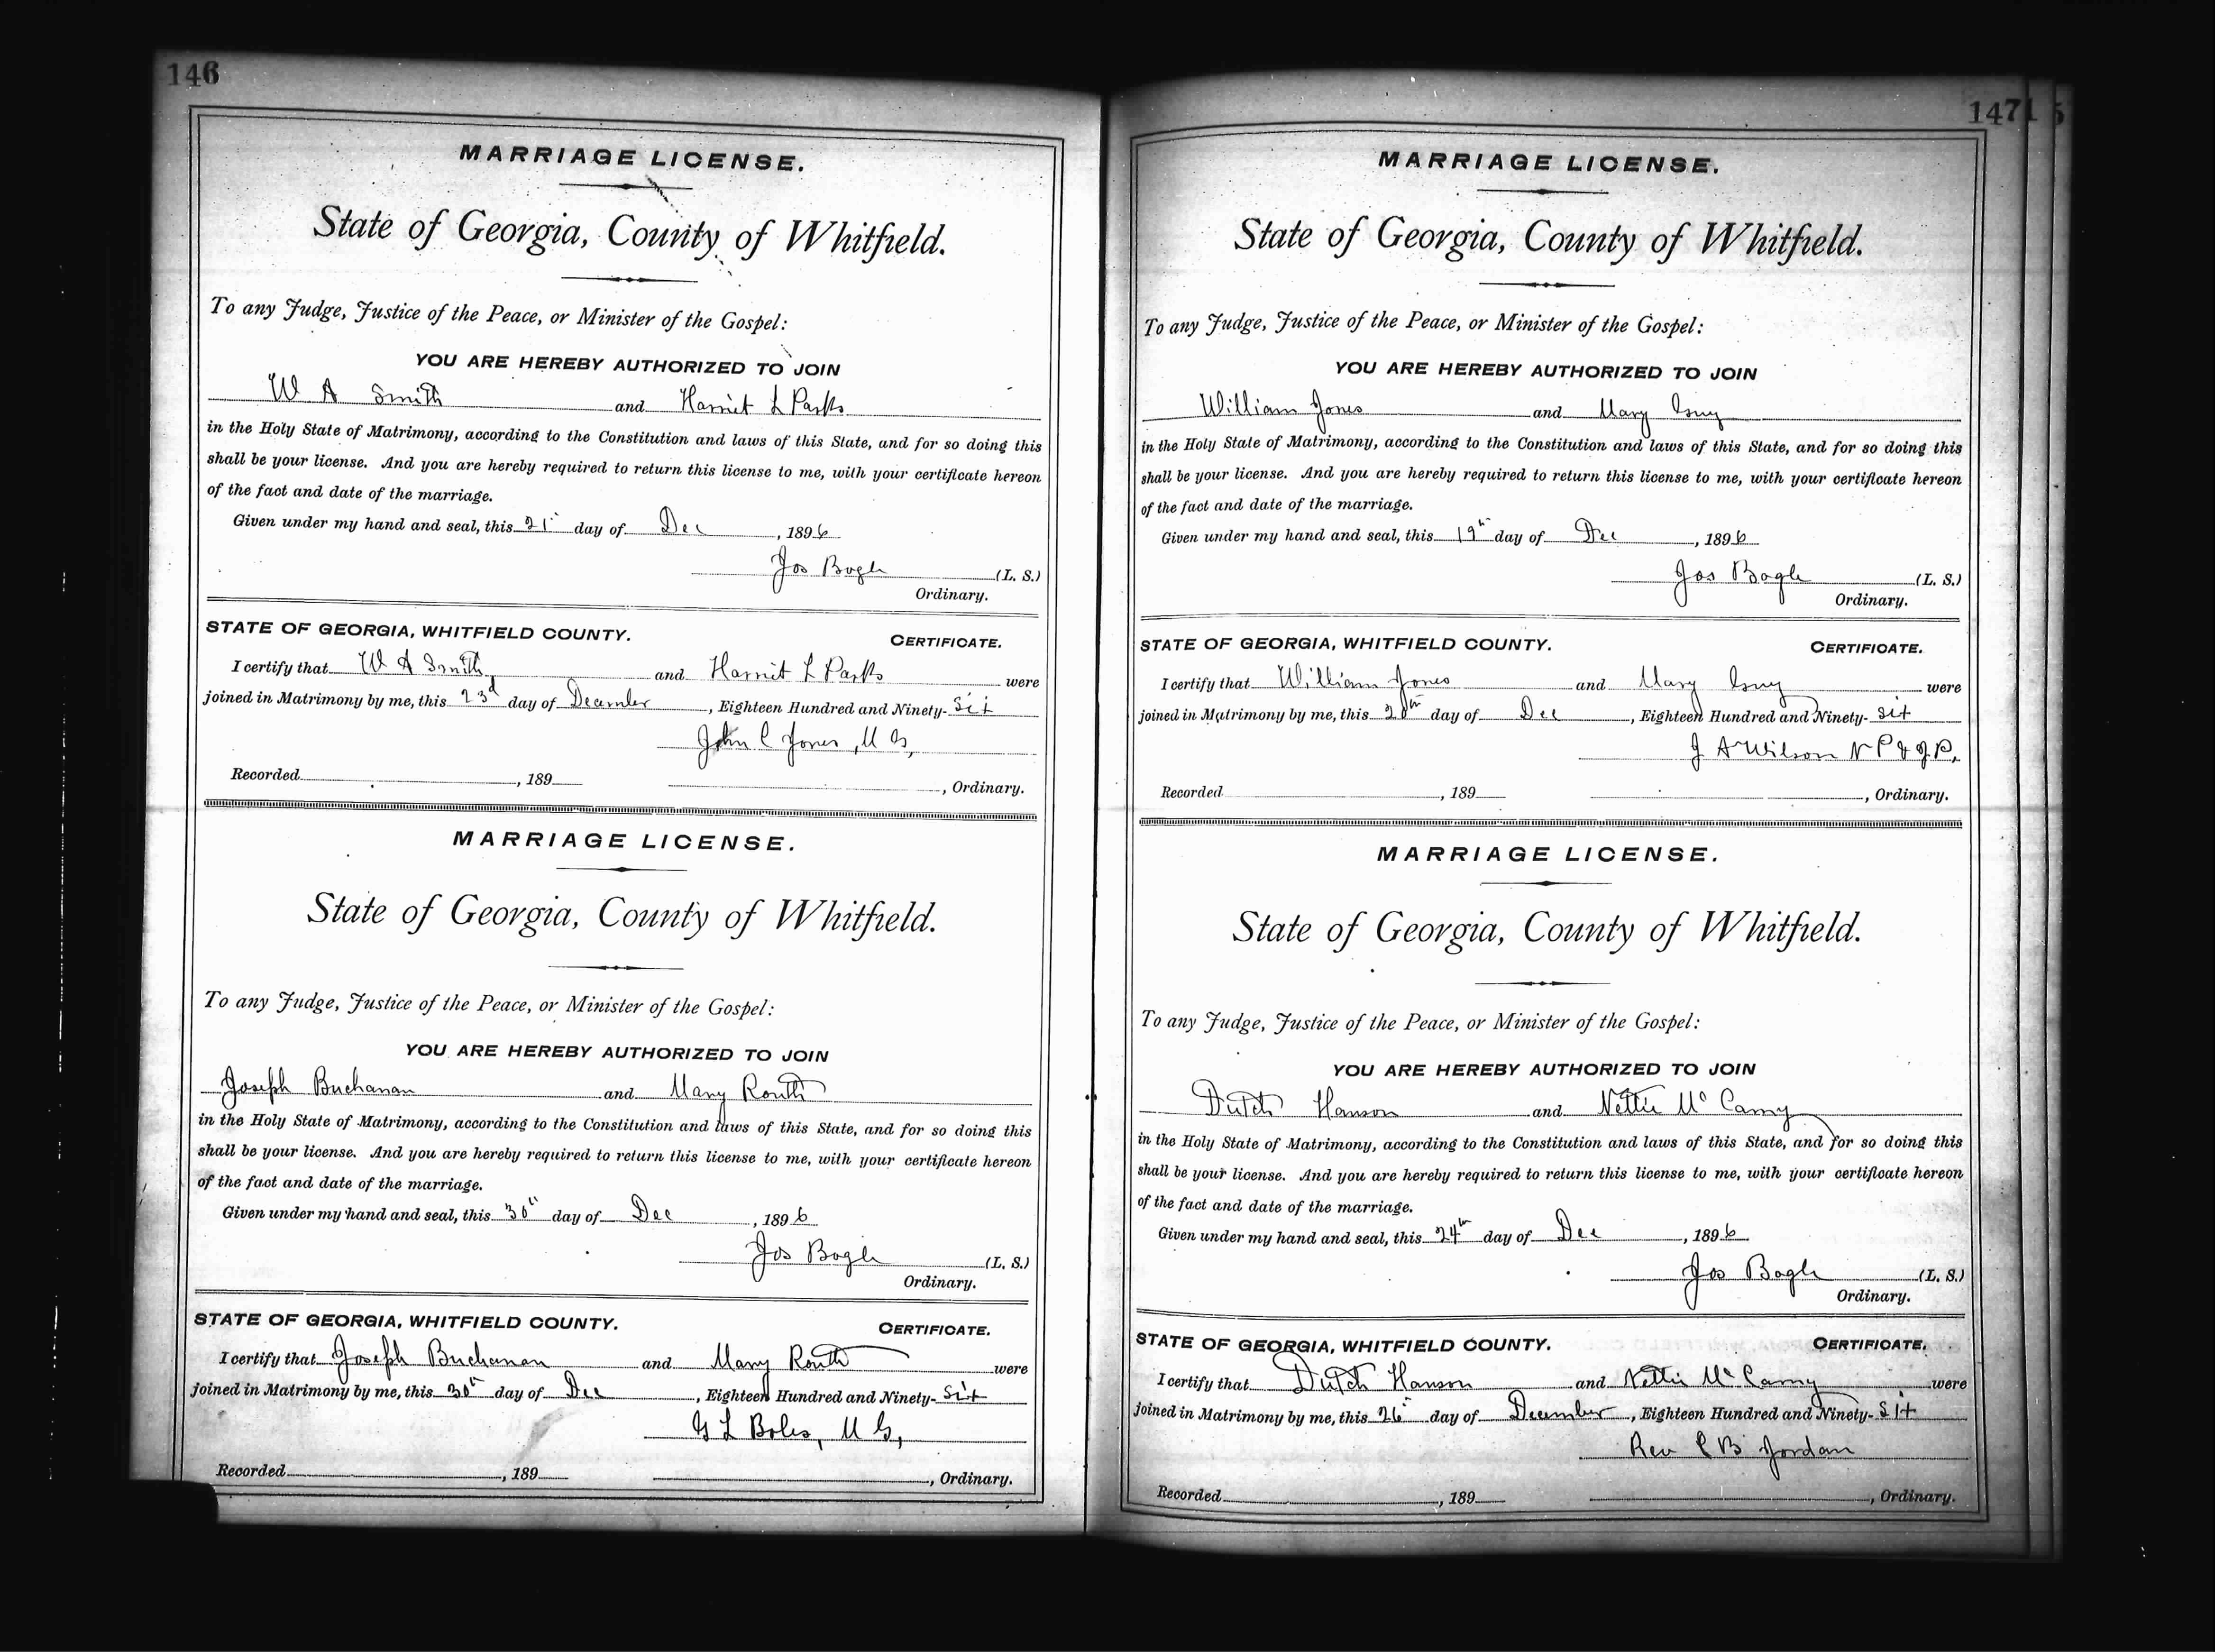 146
MARRIAGE LICENSE.
State of Georgia, County of Whitfield.
To any Judge, Justice of the Peace, or Minister of the Gospel:
YOU ARE HEREBY AUTHORIZED TO JOIN
W A Smith and Harriet L Parks
in the Holy State of Matrimony, according to the Constitution and laws of this State, and for so doing this
shall be your license. And you are hereby required to return this license to me, with your certificate hereon
of the fact and date of the marriage.
Given under my hand and seal, this 21 day of Dec, 1896
Jos Bogle (L. S.)
Ordinary.
STATE OF GEORGIA, WHITFIELD COUNTY. CERTIFICATE.
I certify that W A Smith and Harriet L Parks were
joined in Matrimony by me, this 23d day of December, Eighteen Hundred and Ninety-Six
John C Jones, M G,
Recorded, 189 , Ordinary.
MARRIAGE LICENSE.
State of Georgia, County of Whitfield.
To any Judge, Justice of the Peace, or Minister of the Gospel:
YOU ARE HEREBY AUTHORIZED TO JOIN
Joseph Buchanan and Mary Routh
in the Holy State of Matrimony, according to the Constitution and laws of this State, and for so doing this
shall be your license. And you are hereby required to return this license to me, with your certificate hereon
of the fact and date of the marriage.
Given under my hand and seal, this 30th day of Dec, 1896
Jos Bogle (L. S.)
Ordinary.
STATE OF GEORGIA, WHITFIELD COUNTY. CERTIFICATE.
I certify that Joseph Buchanan and Mary Routh were
joined in Matrimony by me, this 30th day of Dec, Eighteen Hundred and Ninety-Six
G L Boles, M G,
Recorded, 189 , Ordinary.
147
MARRIAGE LICENSE.
State of Georgia, County of Whitfield.
To any Judge, Justice of the Peace, or Minister of the Gospel:
YOU ARE HEREBY AUTHORIZED TO JOIN
William Jones and Mary
in the Holy State of Matrimony, according to the Constitution and laws of this State, and for so doing this
shall be your license. And you are hereby required to return this license to me, with your certificate hereon
of the fact and date of the marriage.
Given under my hand and seal, this 19th day of Dec, 1896
Jos Bogle (L. S.)
Ordinary.
STATE OF GEORGIA, WHITFIELD COUNTY. CERTIFICATE.
I certify that William Jones and Mary were
joined in Matrimony by me, this 20th day of Dec, Eighteen Hundred and Ninety-six
J A Wilson N P & J P,
Recorded, 189 , Ordinary.
MARRIAGE LICENSE.
State of Georgia, County of Whitfield.
To any Judge, Justice of the Peace, or Minister of the Gospel:
YOU ARE HEREBY AUTHORIZED TO JOIN
Dutch Hanson and Nettie McCamy
in the Holy State of Matrimony, according to the Constitution and laws of this State, and for so doing this
shall be your license. And you are hereby required to return this license to me, with your certificate hereon
of the fact and date of the marriage.
Given under my hand and seal, this 24th day of Dec, 1896
Jos Bogle (L. S.)
Ordinary.
STATE OF GEORGIA, WHITFIELD COUNTY. CERTIFICATE.
I certify that Dutch Hanson and Nettie McCamy were
joined in Matrimony by me, this 26 day of December, Eighteen Hundred and Ninety-Six
Rev C B Jordan
Recorded, 189 , Ordinary.